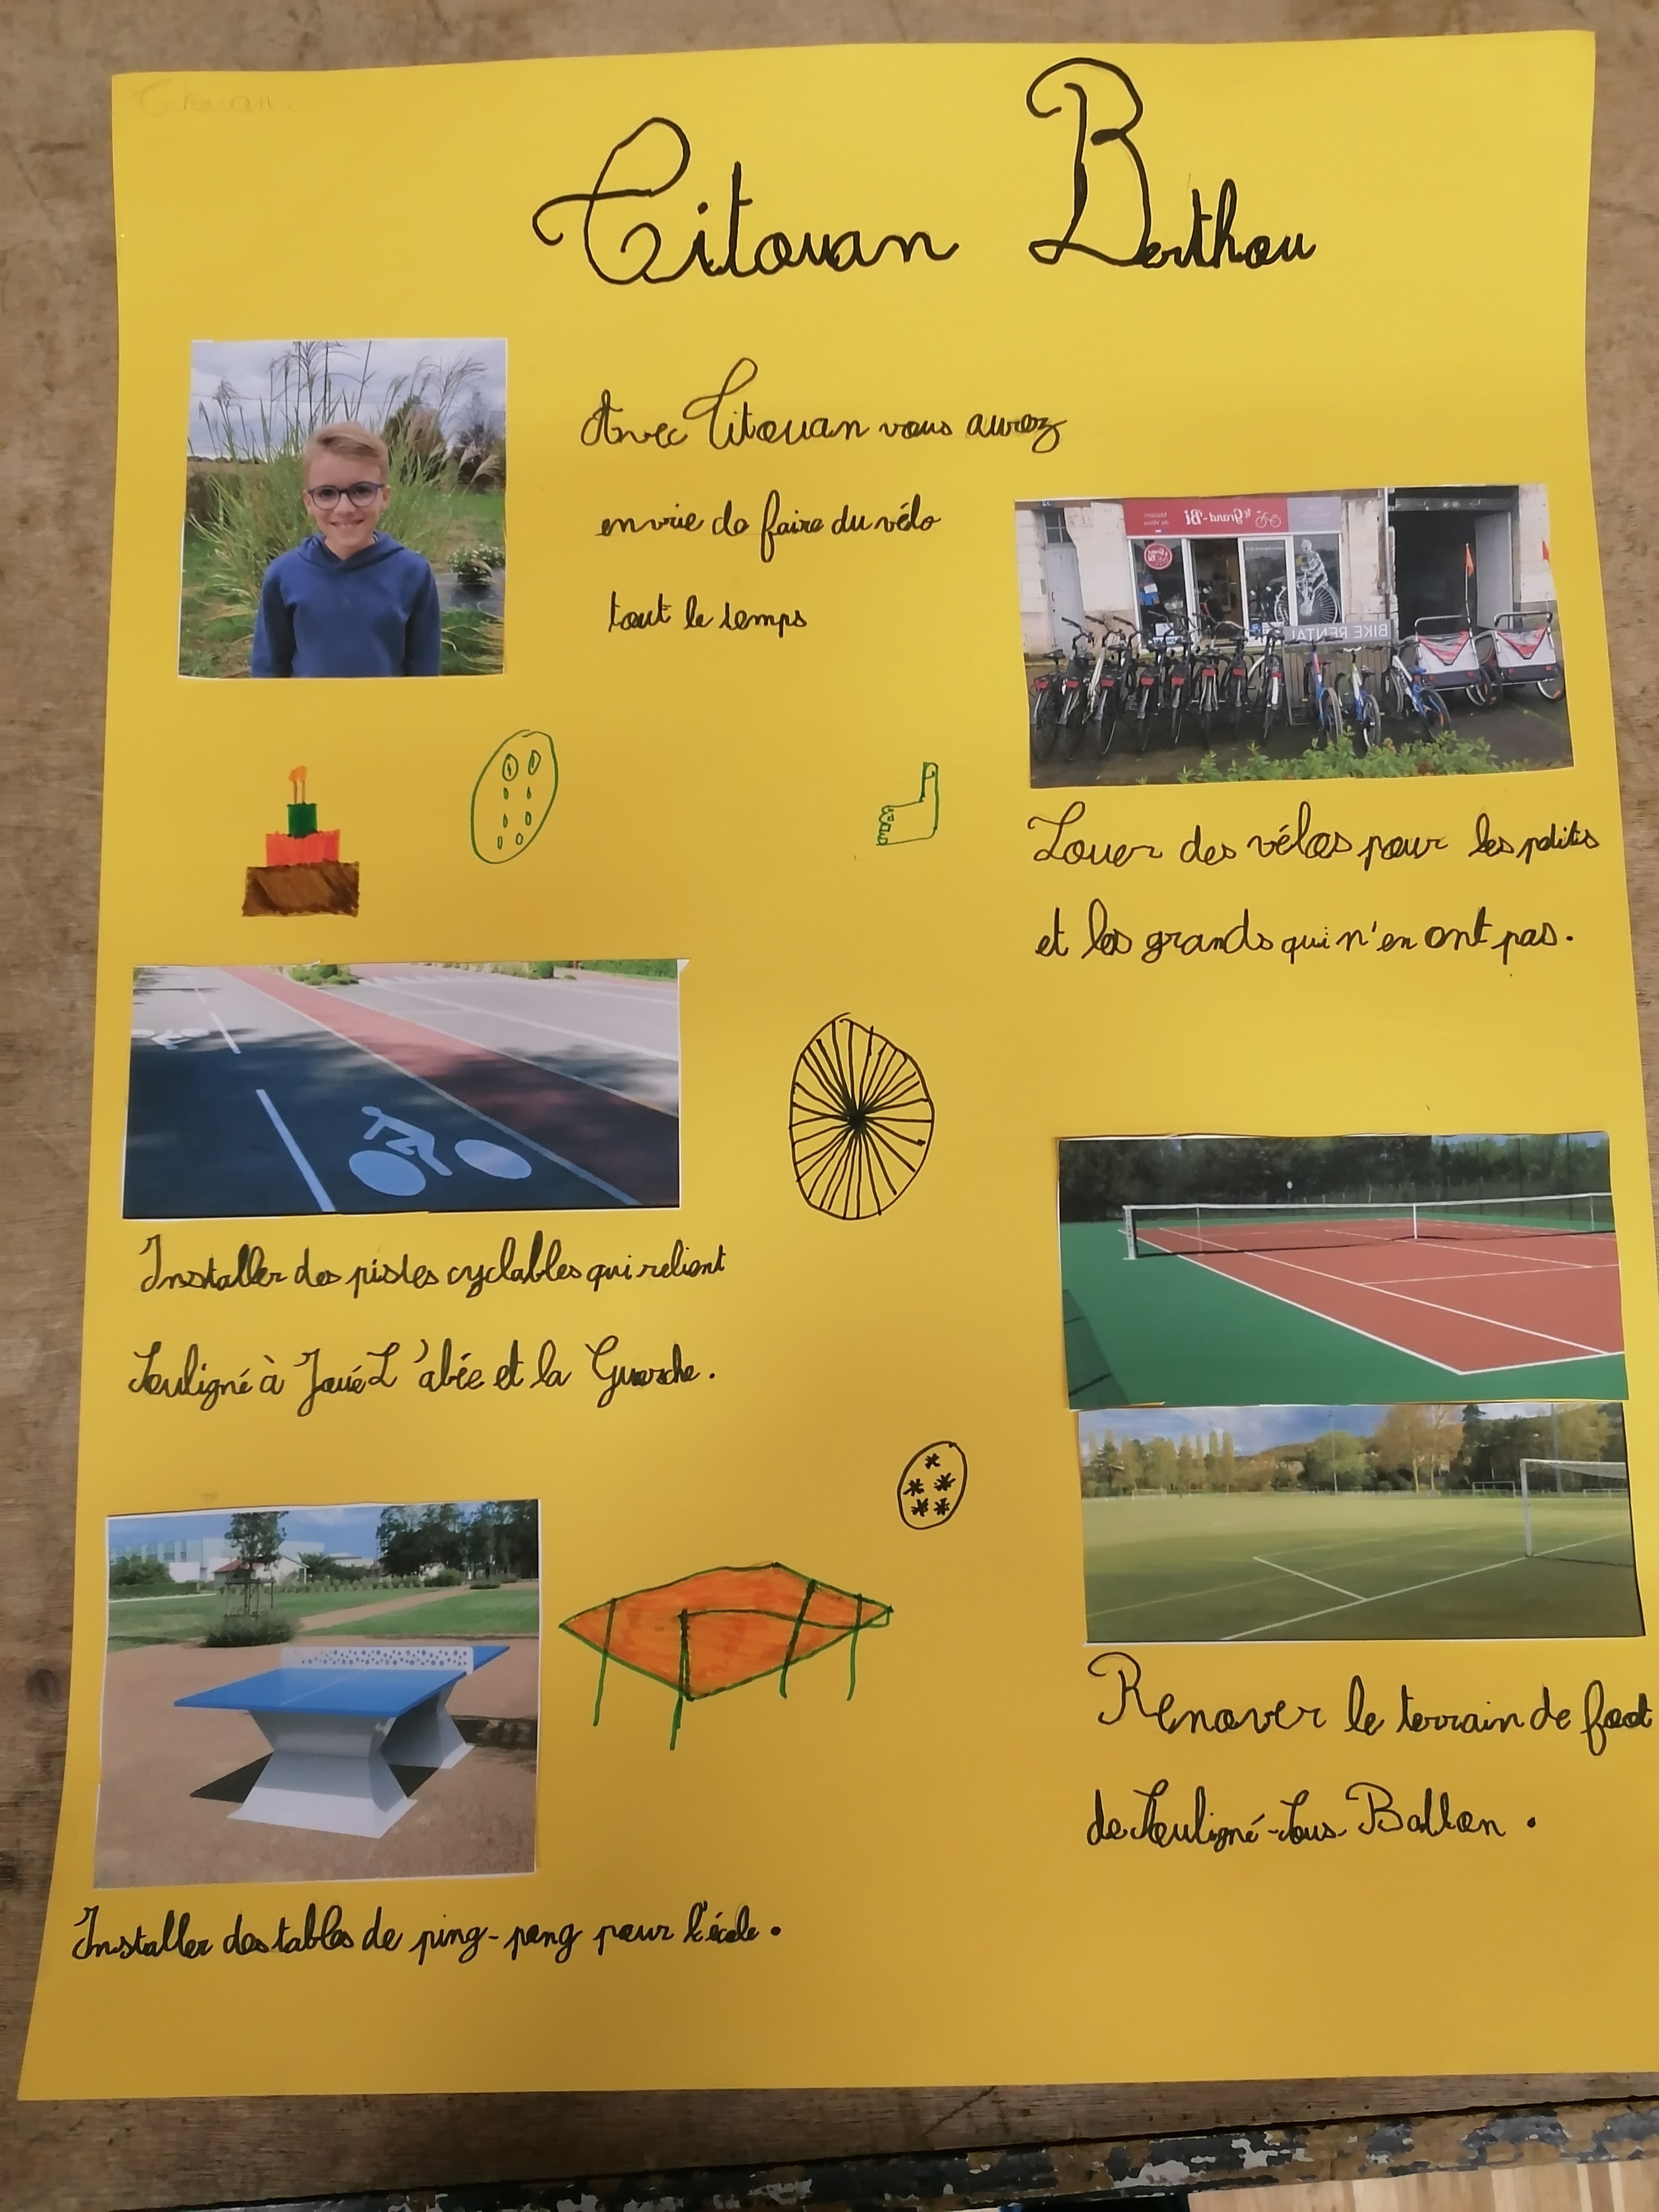 Titouan.
Titouan Berthou
Avec Titouan vous aurez
envie de faire du vélo
tout le temps
Grand-Bi
Maison
du Vélos
BIKE RENTAL
Louer des vélos pour les petits
et les grands qui n'en ont pas.
Installer des pistes cyclables qui relient
Souligné à Joué L'abée et la Guerche.
Renover le terrain de foot
de Souligné-Sous-Ballon.
Installer des tables de ping-pong pour l'école.